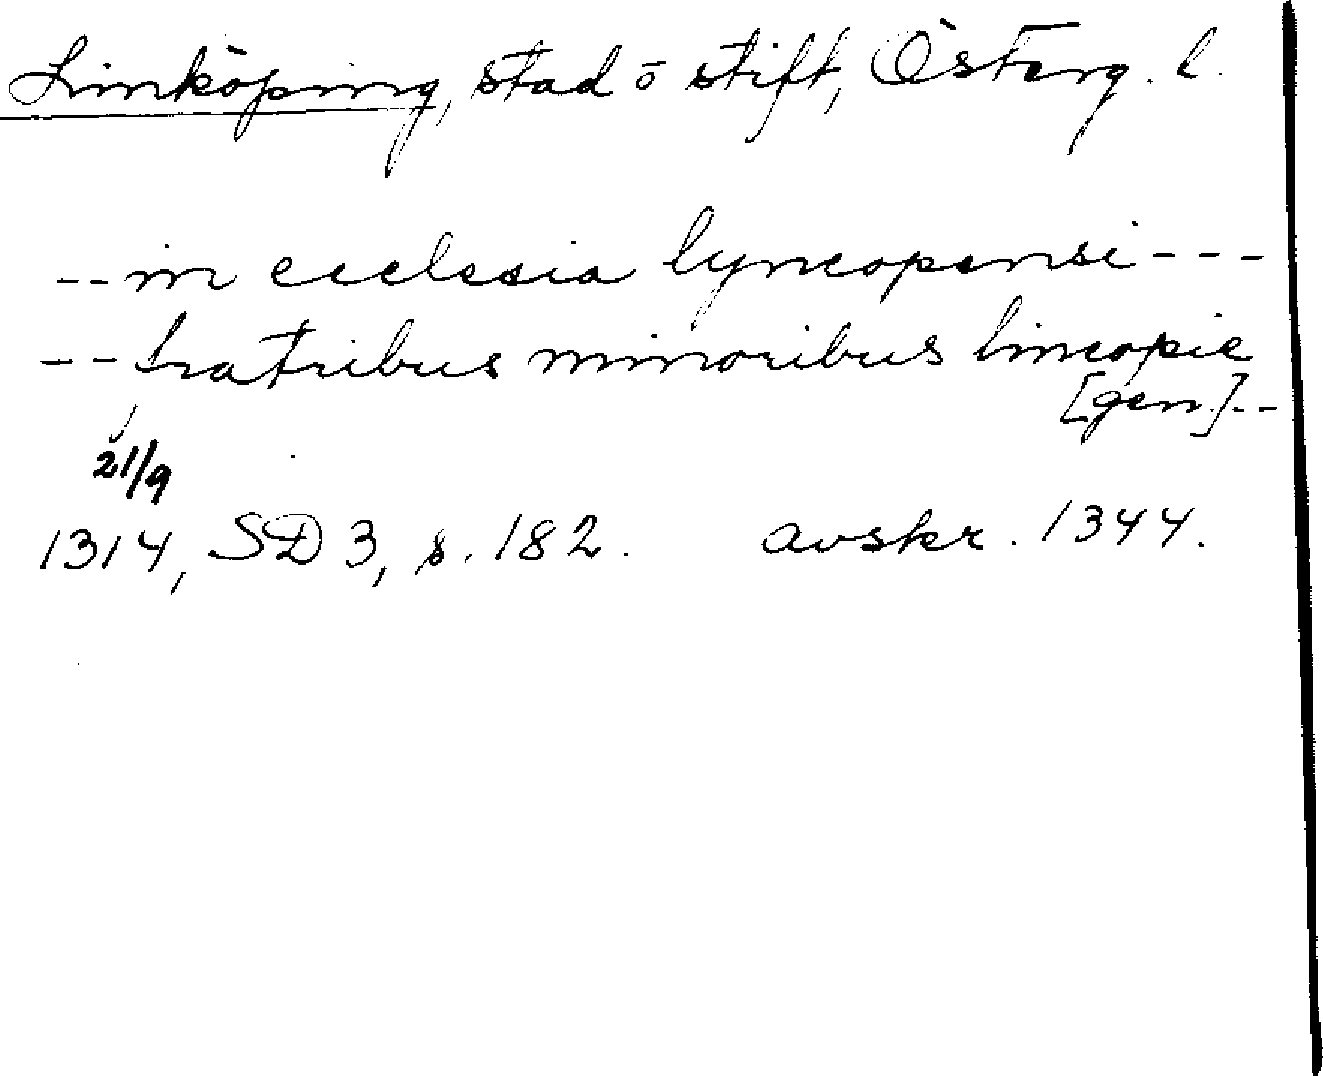 Linköping, stad o stift, Österg. l.
-- in ecclesia lyncopensi ---
-- fratribus minoribus lincopie
[gen.] --
21/9
1314, SD 3, s. 182. avskr. 1344.